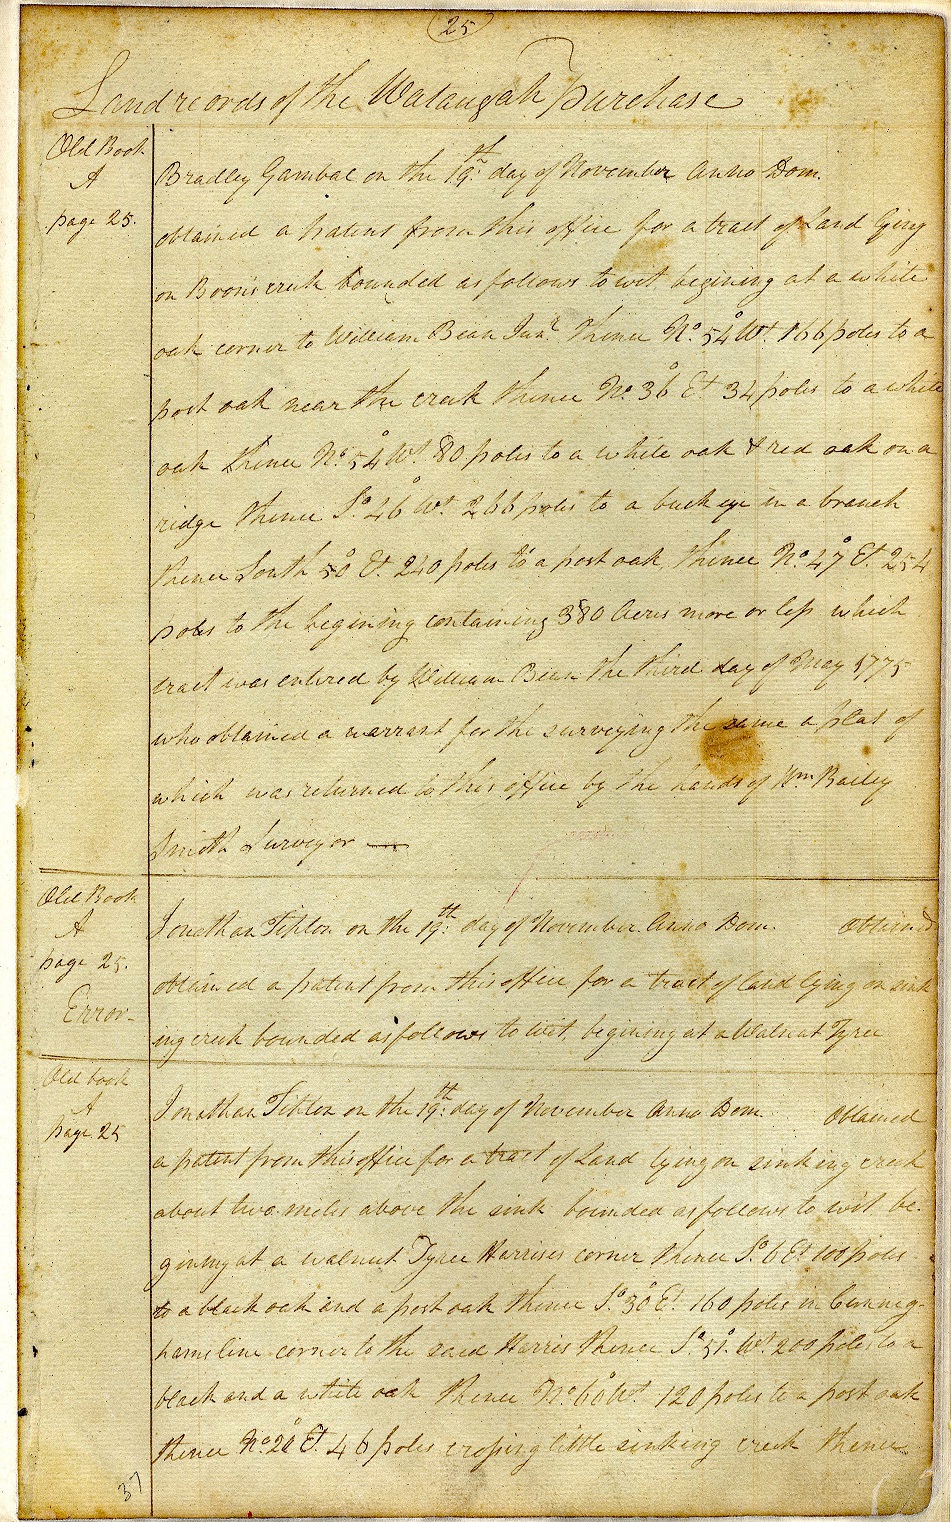 25
Land records of the Wataugah Purchase
Old Book
A
page 25.
Bradley Gambal on the 19th: day of November Anno Dom.
obtained a patent from this office for a tract of Land lying
on Boon's creek bounded as follows to wit begining at a white
oak corner to William Bean Junr. thence No. 54° Wt. 166 poles to a
post oak near the creek thence No. 36° Et 34 poles to a white
oak thence No. 54° Wt. 80 poles to a white oak & red oak on a
ridge thence So. 46° Wt. 266 poles to a buck eye in a branch
thence South 50° Et. 240 poles to a post oak, thence No. 47° Et. 254
poles to the begining containing 380 Acres more or less which
tract was entered by William Bean the third day of May 1775
who obtained a warrant for the surveying the same a plat of
which was returned to this office by the hands of Wm Bailey
Smith Surveyor
Old Book
A
page 25.
Error-
Jonathan Tipton on the 19th: day of November Anno Dom. Obtained
obtained a patent from this office for a tract of land lying on sink
ing creek bounded as follows to wit, begining at a Walnut Tyree
Old book
A
page 25
Jonathan Tipton on the 19th: day of November Anno Dom. Obtained
a patent from this office for a tract of Land lying on sinking creek
about two miles above the sink bounded as follows to wit be-
gining at a walnut Tyree Harrises corner thence So. 6 Et 100 poles
to a black oak and a post oak thence So. 30° Et. 160 poles in Cunnig-
hams line corner to the said Harris thence So. 51° Wt. 200 poles to a
black and a white oak thence No. 60° Wt 120 poles to a post oak
thence No. 20° Et. 46 poles crossing little sinking creek thence
37